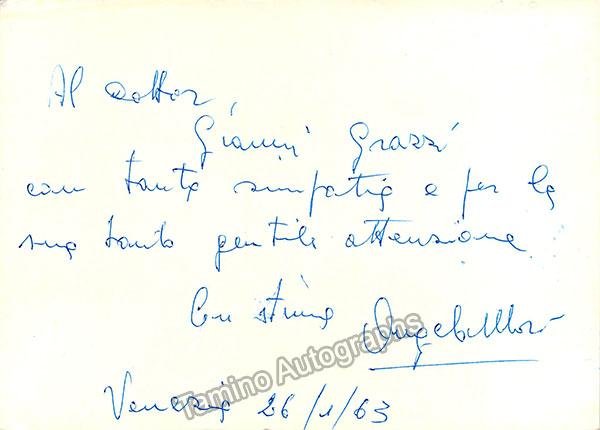 Al Dottor,
Gianni Grassi
con tanta simpatia e per la
sua tanto gentile attenzione
Con stima Angelo Mori
Tamino Autographs
Venezia 26/1/63